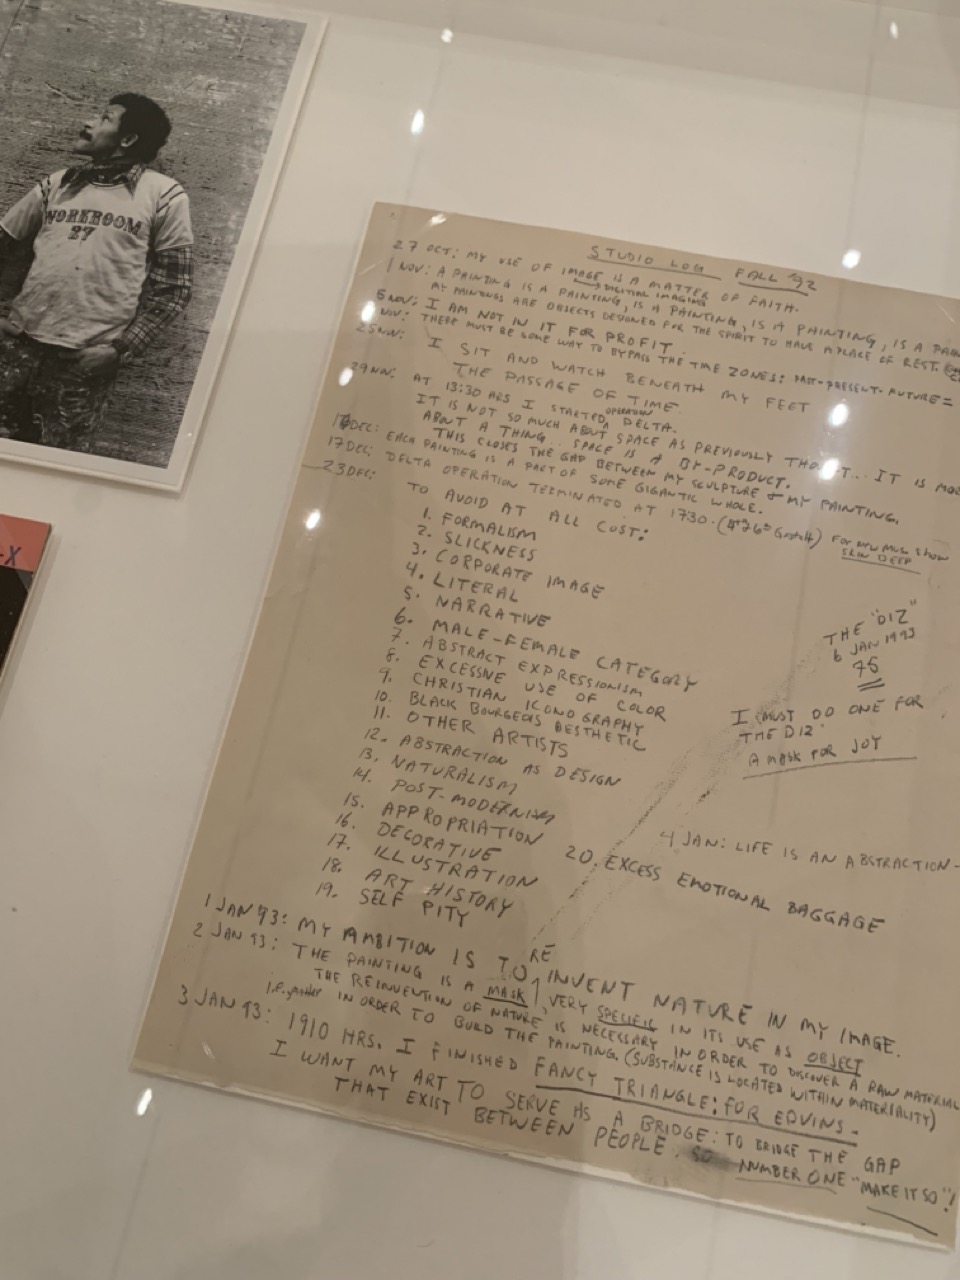 WORKROOM
27
-X
STUDIO LOG FALL '92
27 OCT: MY USE OF IMAGE IS A MATTER OF FAITH.
DIGITAL IMAGING
1 NOV: A PAINTING IS A PAINTING, IS A PAINTING, IS A PAINTING, IS A PAIN
MY PAINTINGS ARE OBJECTS DESIGNED FOR THE SPIRIT TO HAVE A PLACE OF REST.
5 NOV: I AM NOT IN IT FOR PROFIT.
NOV: THERE MUST BE SOME WAY TO BYPASS THE TIME ZONES: PAST-PRESENT-FUTURE=
25 NOV: I SIT AND WATCH BENEATH MY FEET
THE PASSAGE OF TIME.
29 NOV: AT 13:30 HRS I STARTED OPERATION DELTA.
IT IS NOT SO MUCH ABOUT SPACE AS PREVIOUSLY THOUGHT... IT IS MOR
ABOUT A THING... SPACE IS A BY-PRODUCT.
DEC: THIS CLOSES THE GAP BETWEEN MY SCULPTURE & MY PAINTING.
17 DEC: EACH PAINTING IS A PART OF SOME GIGANTIC WHOLE.
23 DEC: DELTA OPERATION TERMINATED AT 1730. FOR NEW MUS. SHOW
SLOW DEEP
TO AVOID AT ALL COST:
1. FORMALISM
2. SLICKNESS
3. CORPORATE IMAGE
4. LITERAL
5. NARRATIVE
6. MALE-FEMALE CATEGORY
7. ABSTRACT EXPRESSIONISM
8. EXCESSIVE USE OF COLOR
9. CHRISTIAN ICONOGRAPHY
10. BLACK BOURGEOIS AESTHETIC
11. OTHER ARTISTS
12. ABSTRACTION AS DESIGN
13. NATURALISM
14. POST-MODERNISM
15. APPROPRIATION
16. DECORATIVE
17. ILLUSTRATION
18. ART HISTORY
19. SELF PITY
20. EXCESS EMOTIONAL BAGGAGE
THE "DIZ"
6 JAN 1993
75
I MUST DO ONE FOR
THE DIZ
A MASK FOR JOY
4 JAN: LIFE IS AN ABSTRACTION-
1 JAN 93: MY AMBITION IS TO RE INVENT NATURE IN MY IMAGE.
2 JAN 93: THE PAINTING IS A MASK, VERY SPECIFIC IN ITS USE AS OBJECT
THE REINVENTION OF NATURE IS NECESSARY IN ORDER TO DISCOVER A RAW MATERIAL
i.e. matter IN ORDER TO BUILD THE PAINTING. (SUBSTANCE IS LOCATED WITHIN MATERIALITY)
3 JAN 93: 1910 HRS. I FINISHED FANCY TRIANGLE: FOR EDVINS.
I WANT MY ART TO SERVE AS A BRIDGE: TO BRIDGE THE GAP
THAT EXIST BETWEEN PEOPLE. SO NUMBER ONE "MAKE IT SO"!